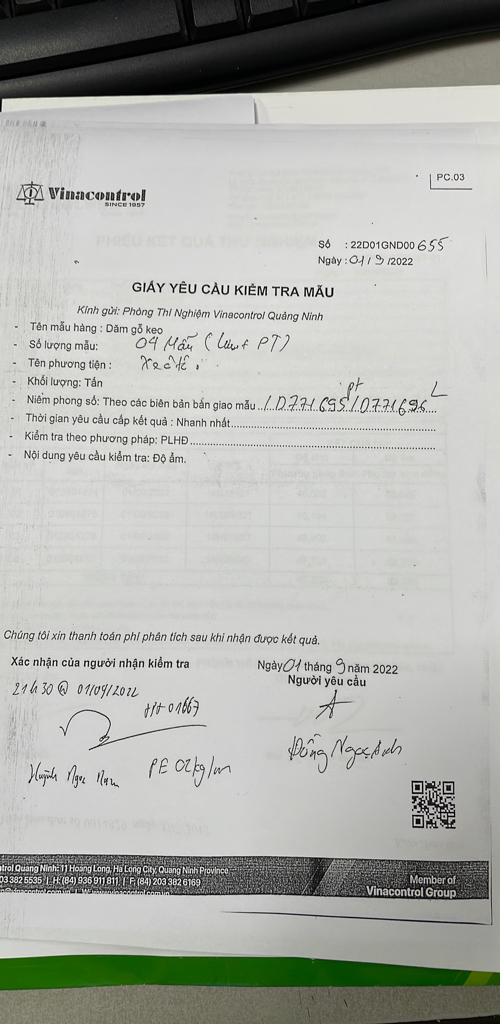 PC.03
Vinacontrol
SINCE 1957
Số : 22D01GND00 655
Ngày : 01/9/2022
GIẤY YÊU CẦU KIỂM TRA MẪU
Kính gửi: Phòng Thí Nghiệm Vinacontrol Quảng Ninh
- Tên mẫu hàng : Dăm gỗ keo
- Số lượng mẫu: 04 Mẫu (lưu + PT)
- Tên phương tiện : Xe ôtô
- Khối lượng: Tấn
pt L
- Niêm phong số: Theo các biên bản bàn giao mẫu ../D771695/D771696...
- Thời gian yêu cầu cấp kết quả : Nhanh nhất
- Kiểm tra theo phương pháp: PLHĐ
- Nội dung yêu cầu kiểm tra: Độ ẩm.
Chúng tôi xin thanh toán phí phân tích sau khi nhận được kết quả.
Xác nhận của người nhận kiểm tra
Ngày 01 tháng 9 năm 2022
Người yêu cầu
21h30 @ 01/09/2022
01667
Đồng Ngọc Anh
Huỳnh Ngọc Nam
PE 02kg/m
trol Quang Ninh: 11 Hoang Long, Ha Long City, Quang Ninh Province
03 382 5535 | H: (84) 936 911 811 | F: (84) 203 382 6169
Member of
Vinacontrol Group